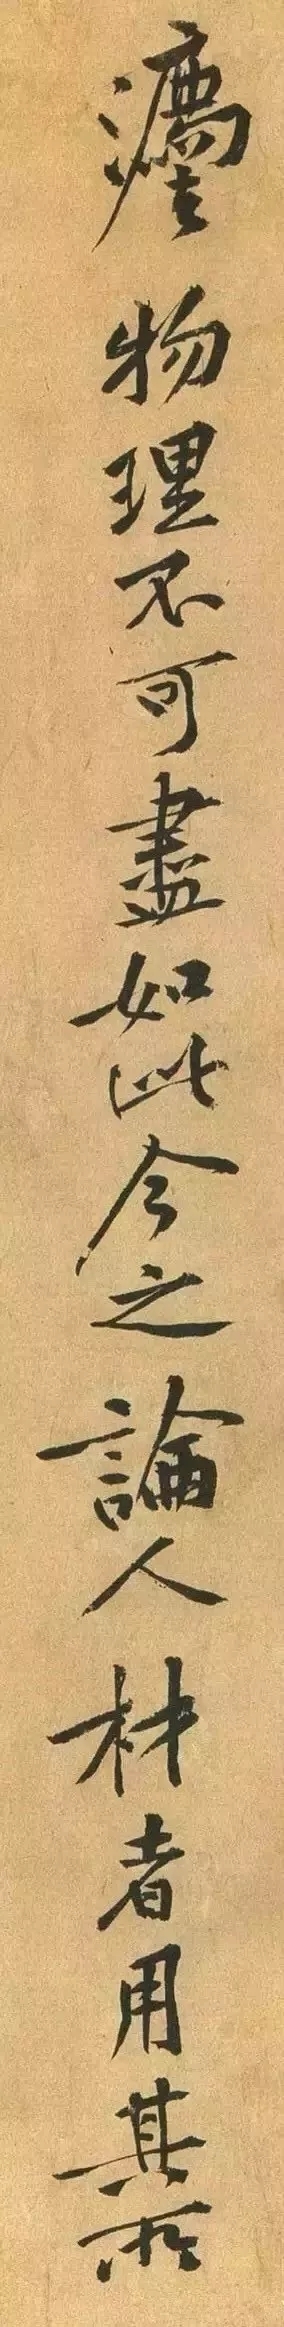 灋物理不可盡如此今之論人材者用其所